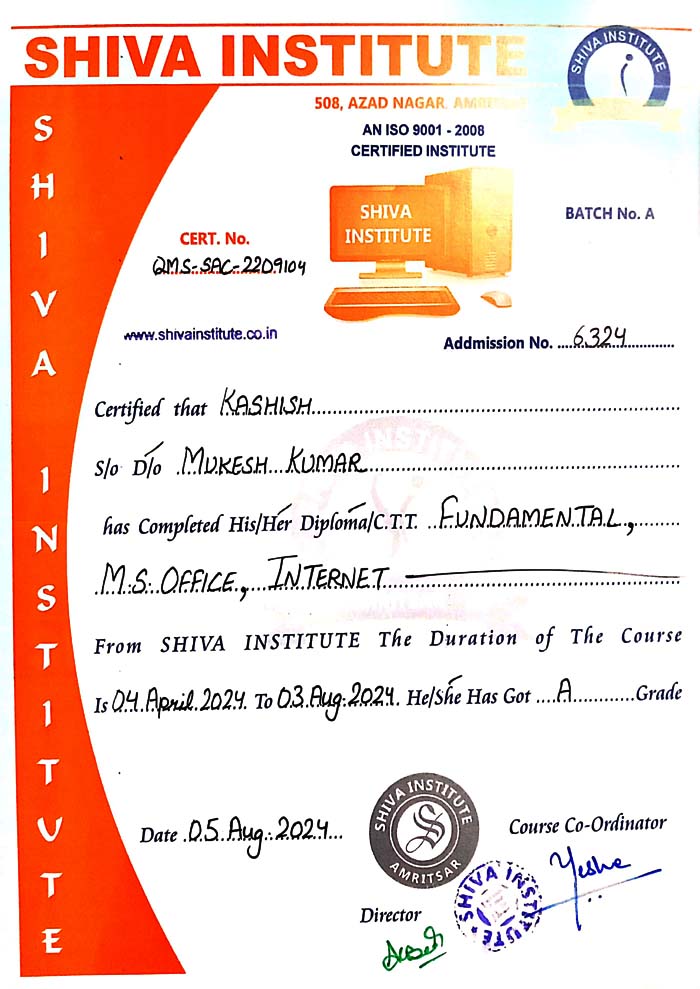 SHIVA INSTITUTE
SHIVA INSTITUTE
508, AZAD NAGAR, AMRITSAR
AN ISO 9001 - 2008
CERTIFIED INSTITUTE
SHIVA
INSTITUTE
BATCH No. A
CERT. No.
QMS-SAC-2209104
www.shivainstitute.co.in
Addmission No. ....6324..............
SHIVA INSTITUTE
Certified that KASHISH
S/o D/o MUKESH KUMAR
has Completed His/Her Diploma/C.T.T. FUNDAMENTAL,
M.S. OFFICE, INTERNET
From SHIVA INSTITUTE The Duration of The Course
Is 04 April 2024 To 03 Aug 2024. He/She Has Got A Grade
Date 05 Aug. 2024
SHIVA INSTITUTE
AMRITSAR
S
Course Co-Ordinator
Yesha
Director
SHIVA INSTITUTE